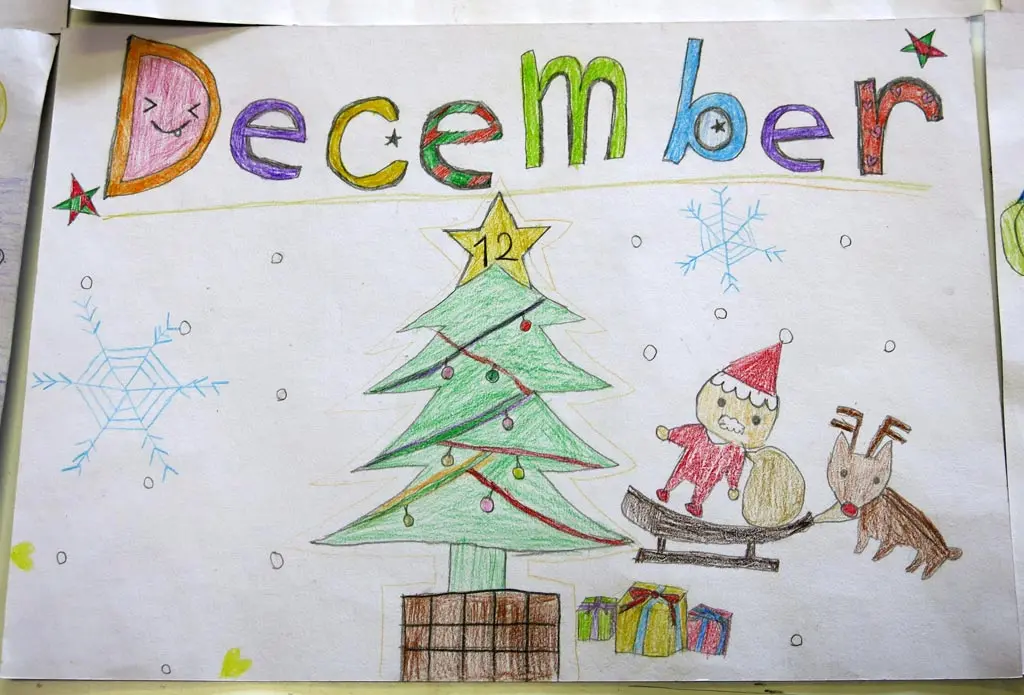 December
12